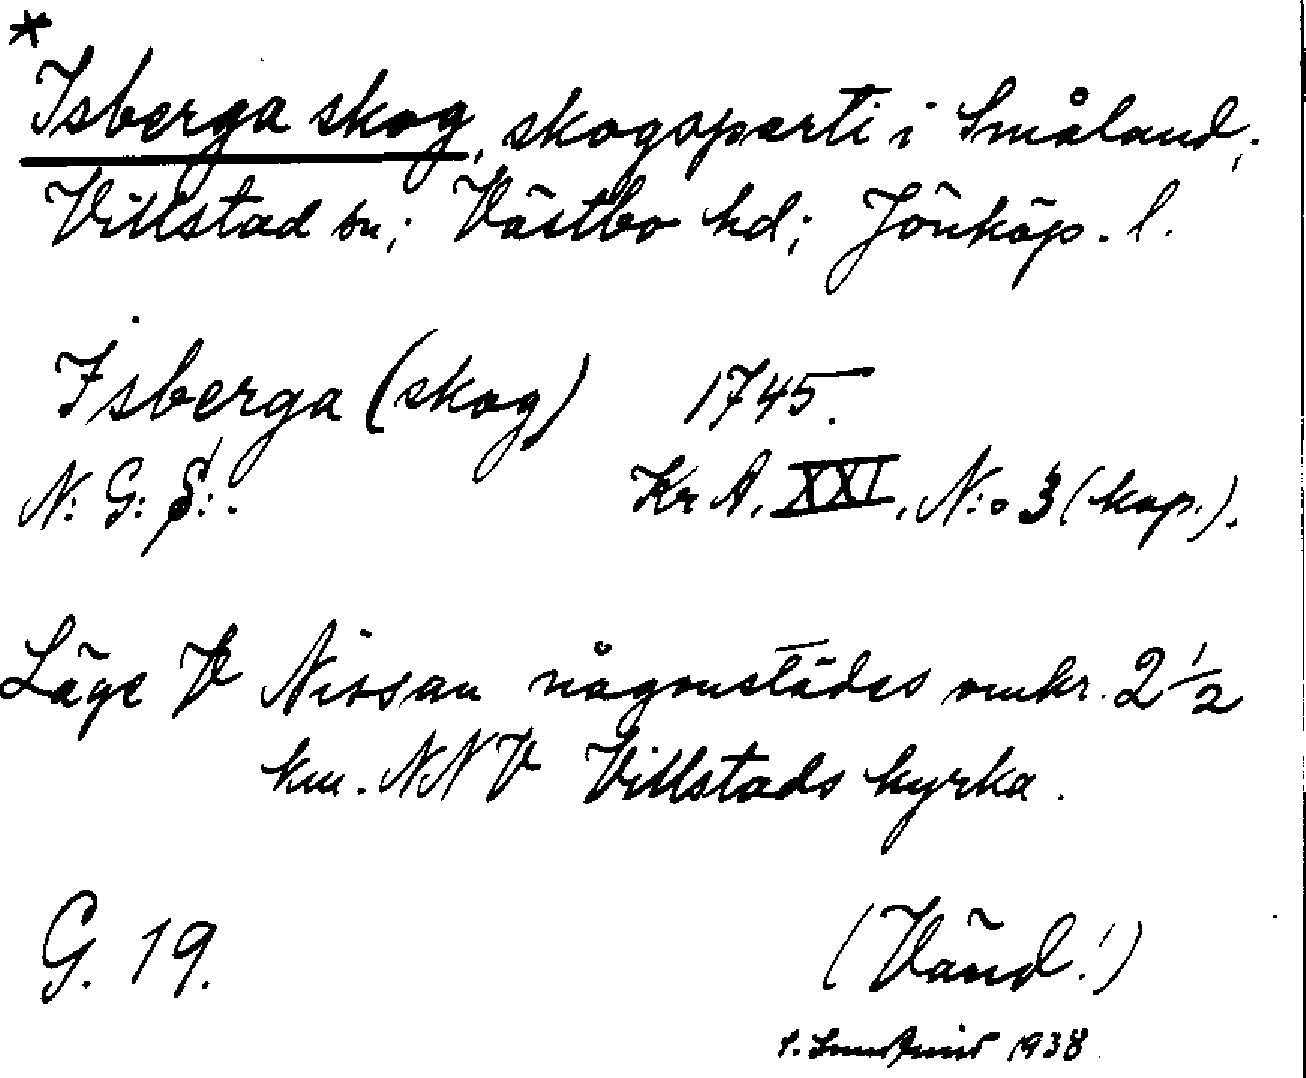 *
Isberga skog, skogsparti i Småland;
Villstad sn; Västbo hd; Jönköp. l.
Isberga (skog) 1745.
N: G: S:. Kr A. XXI, N:o 3 (kop.).
Läge V Nissan någonstädes omkr. 2 1/2
km. NNV Villstads kyrka.
G. 19. (Vänd!)
1938